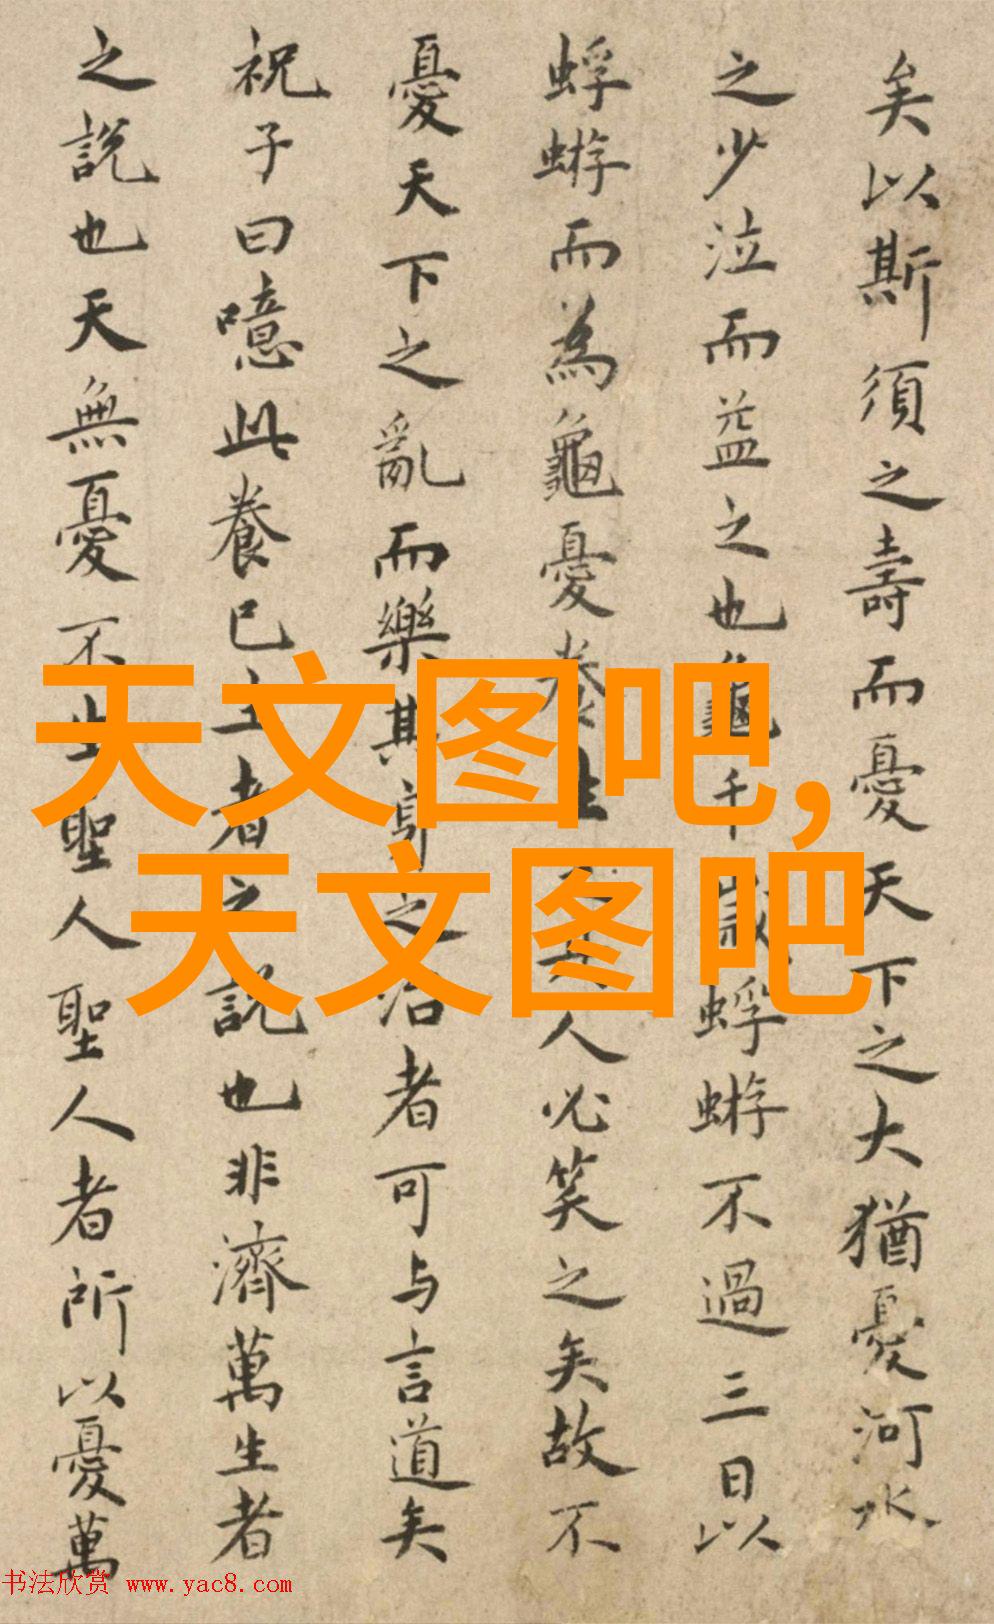 矣以斯須之壽而憂天下之大猶憂河水
之少泣而益之也龜千歲蜉蝣不過三日以
蜉蝣而為龜憂養生之人必笑之矣故不
憂天下之亂而樂其身之治者可与言道矣
祝子曰噫此養己主者之說也非濟萬生者
之說也天無憂不生聖人聖人者所以憂萬
天文图吧,
天文图吧
书法欣赏 www.yac8.com